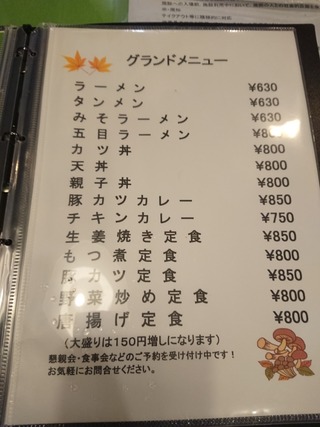 グランドメニュー
ラーメン ¥630
タンメン ¥630
みそラーメン ¥630
五目ラーメン
カツ丼 ¥800
天丼 ¥800
親子丼 ¥800
豚カツカレー ¥850
チキンカレー ¥750
生姜焼き定食 ¥850
もつ煮定食 ¥800
豚カツ定食 ¥850
野菜炒め定食 ¥800
唐揚げ定食 ¥800
(大盛りは150円増しになります)
懇親会・食事会などのご予約を受け付け中です!
お気軽にお問合せください。